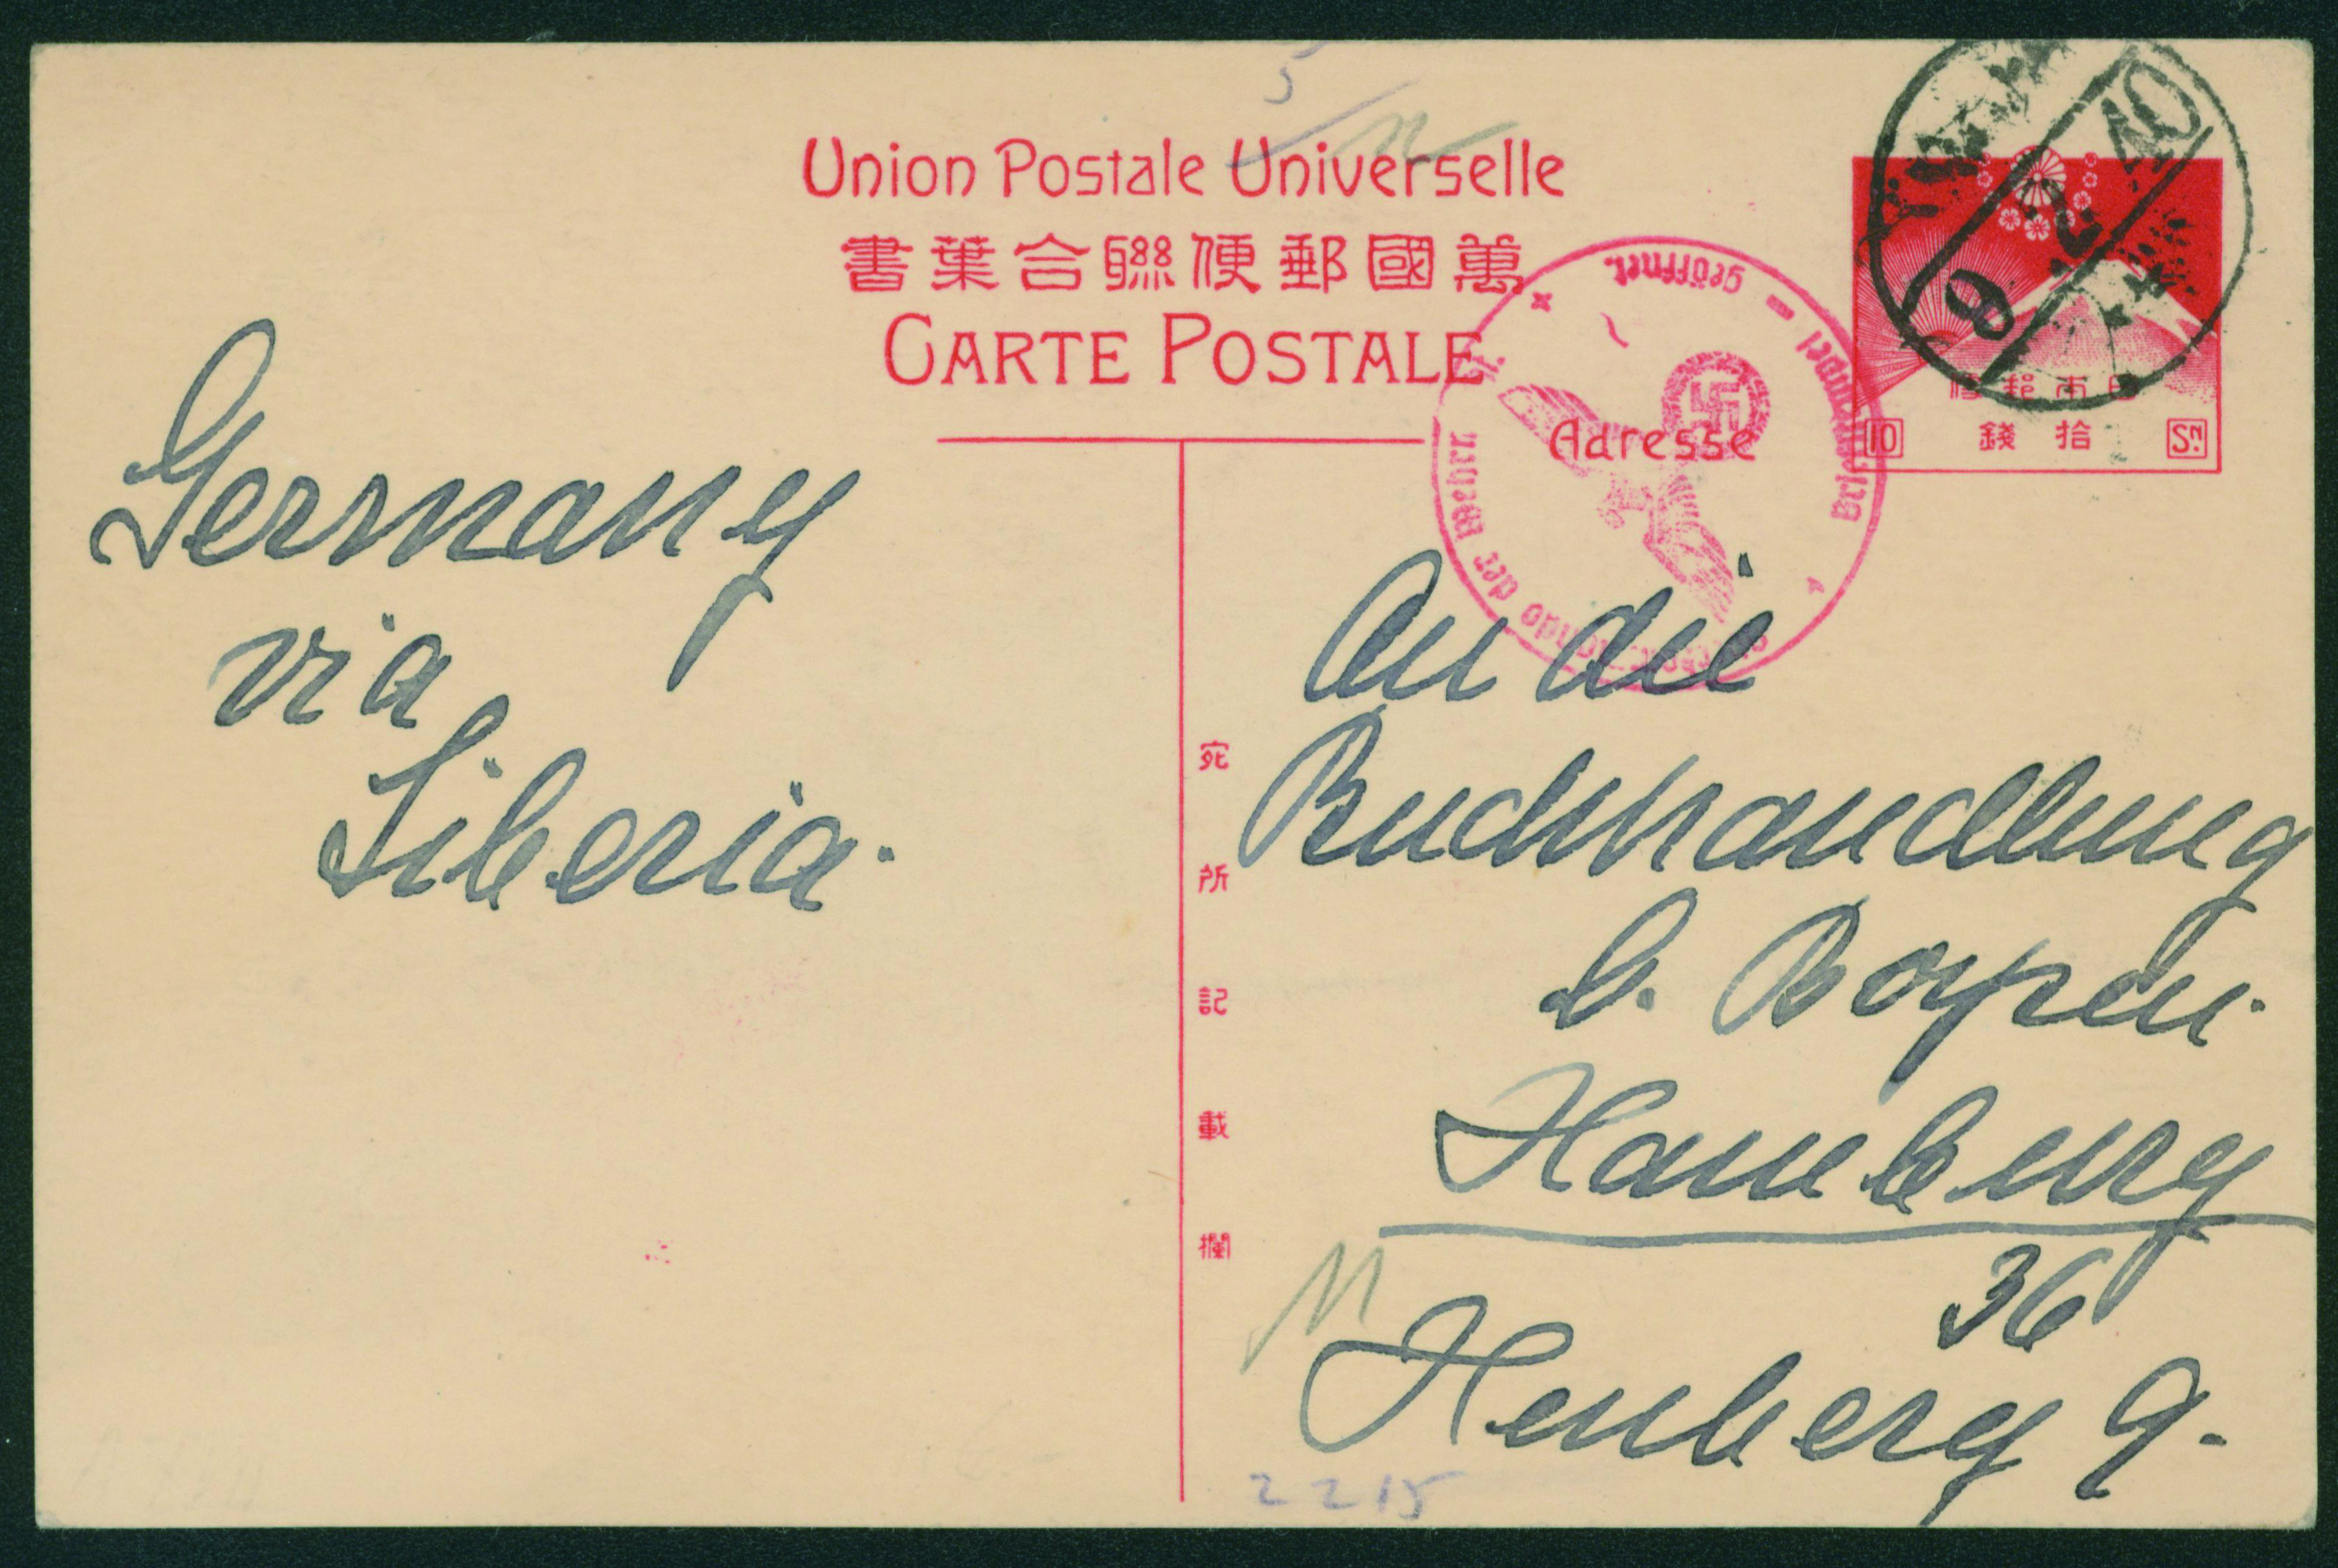 5
Union Postale Universelle
書葉合聯便郵國萬
CARTE POSTALE
Adresse
geöffnet.
Briefstempel
der Wehrm
9 2 40
便郵本日
10 錢拾 Sn.
Germany
via
Siberia.
宛所記載欄
An die
Buchhandlung
C. Boysen.
Hamburg
36
Heuberg 9.
2215